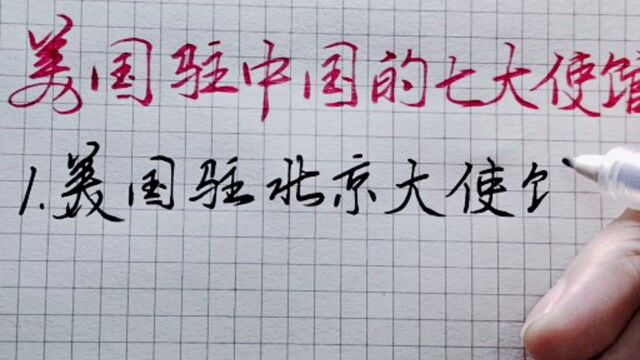 美国驻中国的七大使馆
1.美国驻北京大使